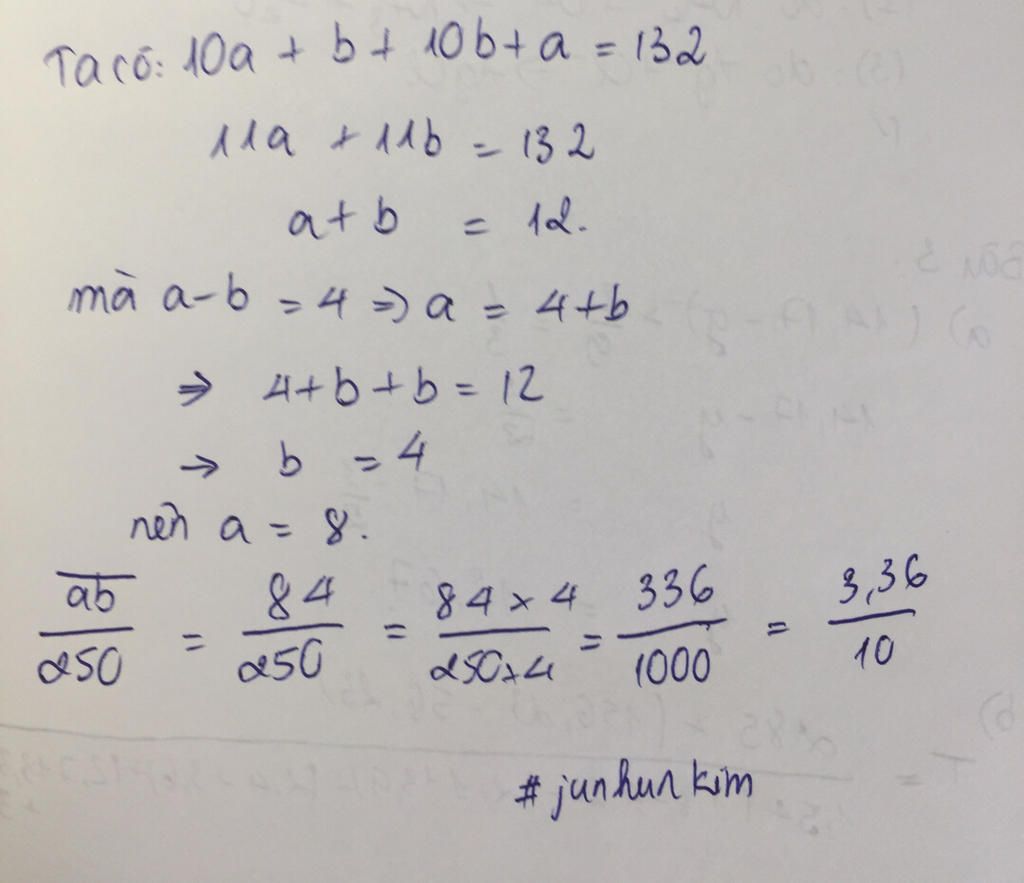 Ta có: 10a + b + 10b + a = 132
11a + 11b = 132
a + b = 12.
mà a - b = 4 => a = 4 + b
=> 4 + b + b = 12
-> b = 4
nên a = 8.
ab/250 = 84/250 = 84 x 4/250 x 4 = 336/1000 = 3,36/10
# junhunkim